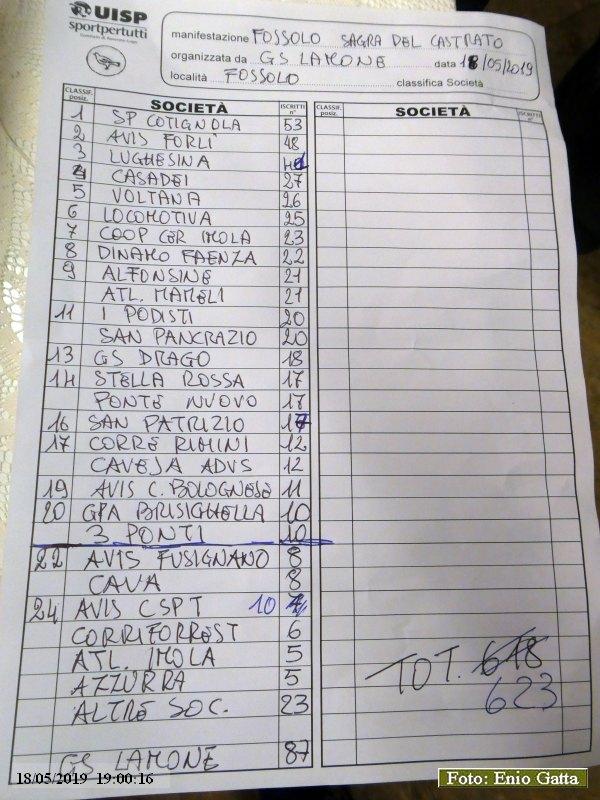 UISP
sportpertutti
manifestazione FOSSOLO SAGRA DEL CASTRATO
organizzata da GS LAMONE data 18/05/2019
località FOSSOLO classifica Società
CLASSIF. posiz. SOCIETÀ ISCRITTI n° CLASSIF. posiz. SOCIETÀ ISCRITTI n°
1 SP COTIGNOLA 53
2 AVIS FORLI' 48
3 LUGHESINA
4 CASADEI 27
5 VOLTANA 26
6 LOCOMOTIVA 25
7 COOP CER IMOLA 23
8 DINAMO FAENZA 22
9 ALFONSINE 21
ATL. MAMELI 21
11 I PODISTI 20
SAN PANCRAZIO 20
13 GS DRAGO 18
14 STELLA ROSSA 17
PONTE NUOVO 17
16 SAN PATRIZIO
17 CORRE RIMINI 12
CAVEJA ADVS 12
19 AVIS C. BOLOGNESE 11
20 GPA BRISIGHELLA 10
3 PONTI 10
22 AVIS FUSIGNANO 8
CAVA 8
24 AVIS CSPT 10
CORRIFORREST 6
ATL. IMOLA 5
AZZURRA 5
ALTRE SOC. 23
GS LAMONE 87
TOT. 618
623
18/05/2019 19:00:16
Foto: Enio Gatta